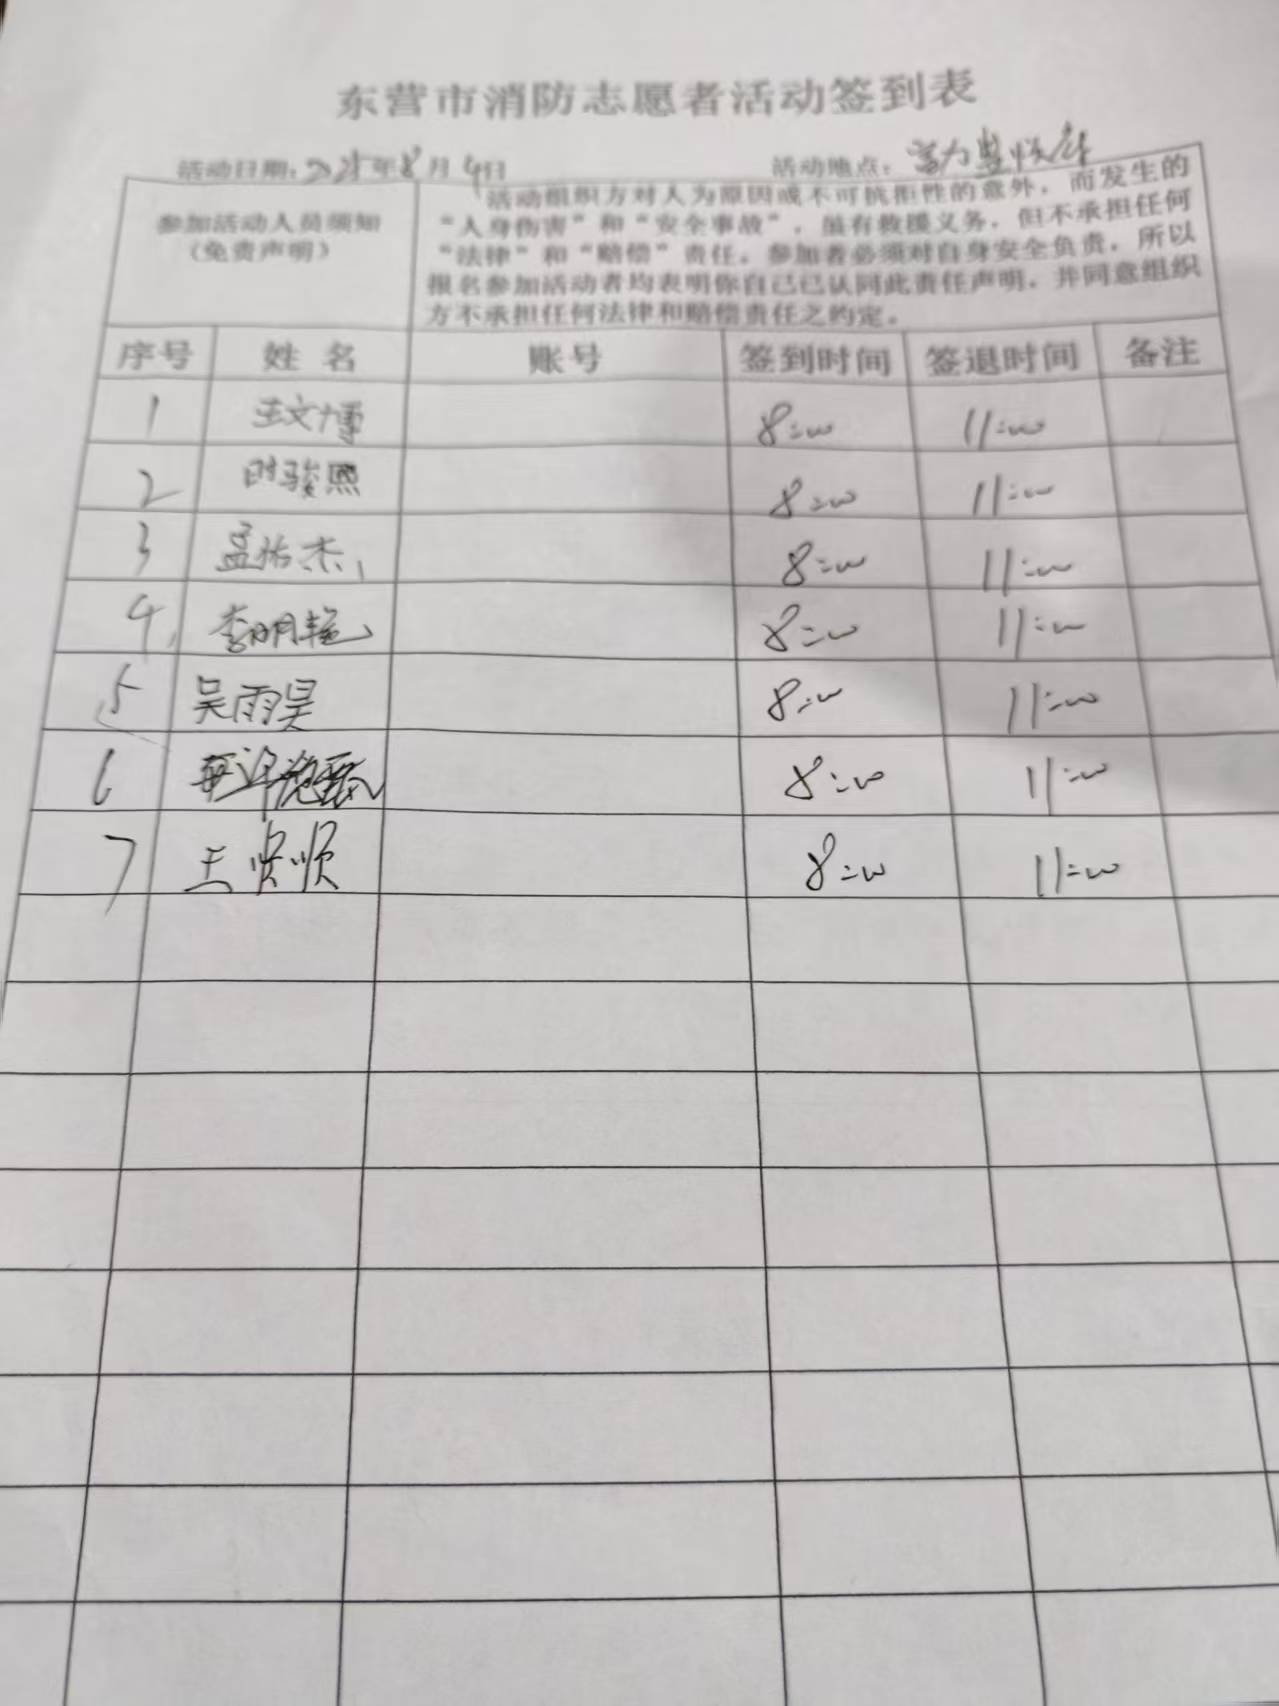 东营市消防志愿者活动签到表
活动日期：2025年8月4日 活动地点：
参加活动人员须知
（免责声明）
活动组织方对人为原因或不可抗拒性的意外，而发生的
“人身伤害”和“安全事故”，虽有救援义务，但不承担任何
“法律”和“赔偿”责任。参加者必须对自身安全负责，所以
报名参加活动者均表明你自己已认同此责任声明，并同意组织
方不承担任何法律和赔偿责任之约定。
序号 姓名 账号 签到时间 签退时间 备注
1 王文博 8:00 11:00
2 时骏熙 8:00 11:00
3 孟佑杰 8:00 11:00
4 李明艳 8:00 11:00
5 吴雨昊 8:00 11:00
6 8:00 11:00
7 王贤顺 8:00 11:00